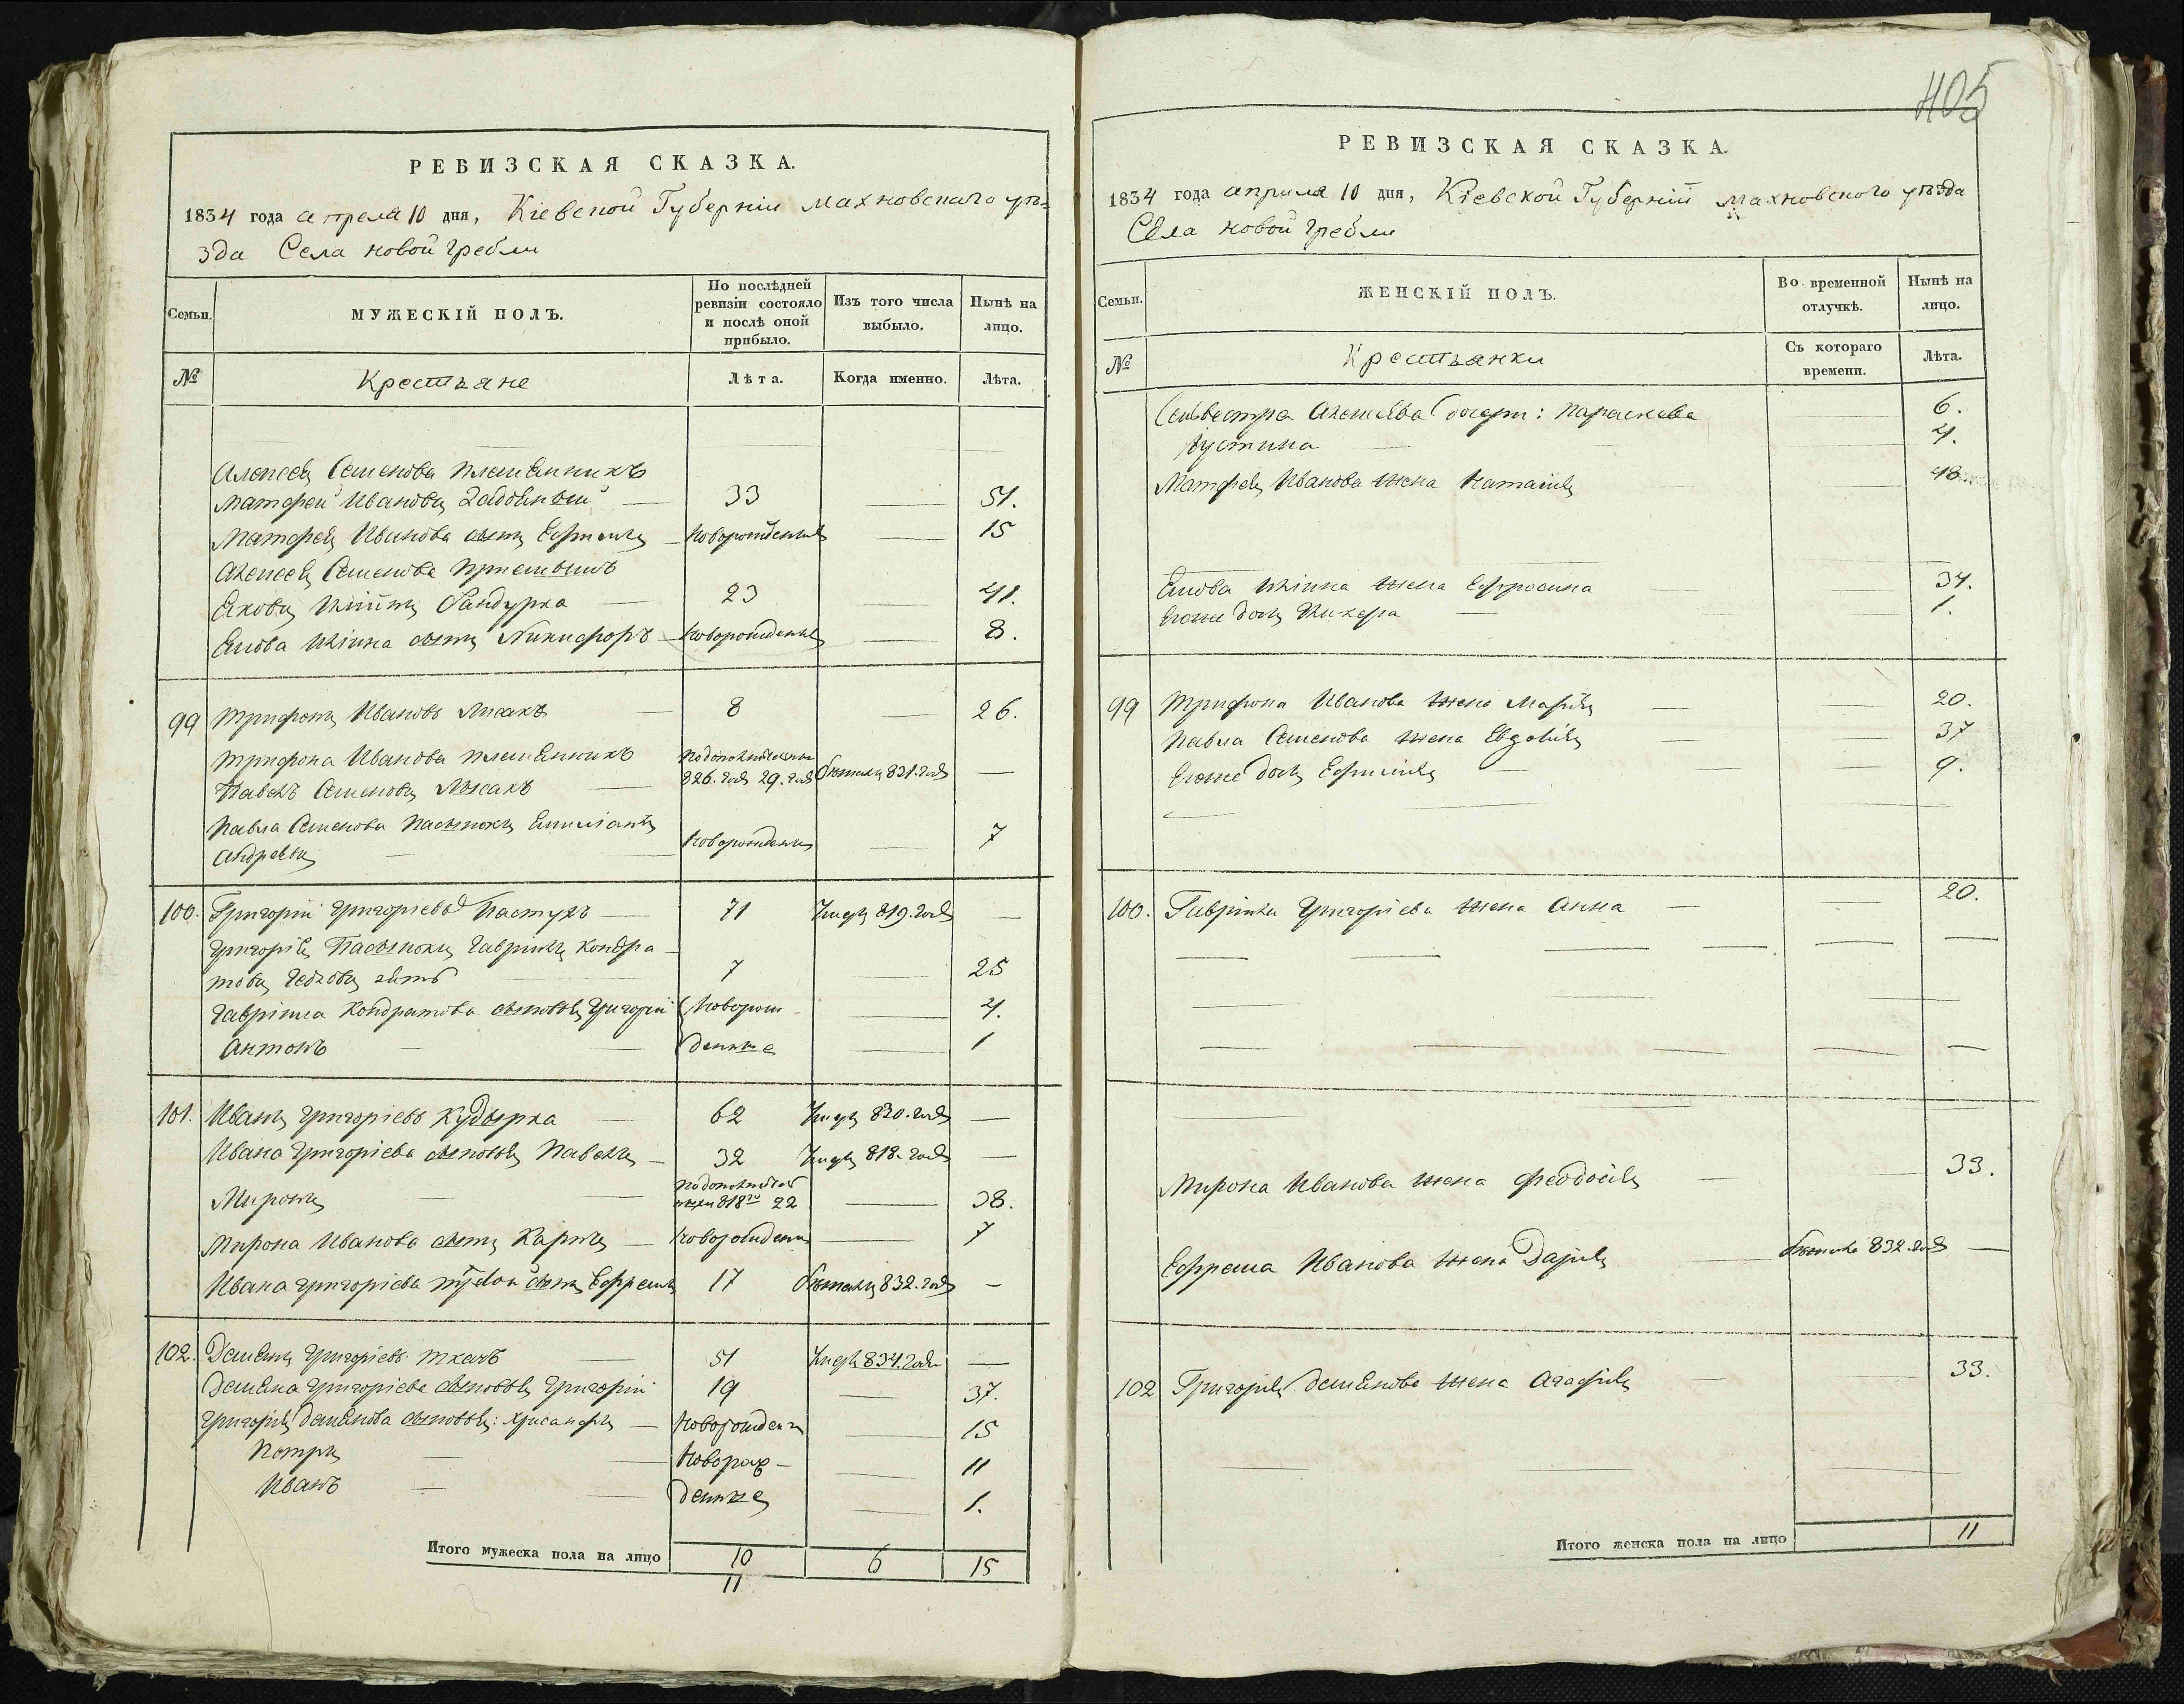 РЕВИЗСКАЯ СКАЗКА.
1834 года апреля 10 дня, Кіевской Губерніи Махновскаго уѣ=
зда Села новой гребли
Семьи.
МУЖЕСКІЙ ПОЛЪ.
По послѣдней
ревизіи состояло
и послѣ оной
прибыло.
Изъ того числа
выбыло.
Нынѣ на
лицо.
№
Крестьяне
Лѣта.
Когда именно.
Лѣта.
Алексея Семенова племянникъ
Матфей Ивановъ 33 51.
Матфея Иванова сынъ новорожденный 15
Алексея Семенова
Яковъ 23 41.
Якова сынъ Никифоръ новорожденный 8.
99 Трифонъ Ивановъ Лисакъ 8 26.
Трифона Иванова племянникъ
Павелъ Семеновъ Лисакъ 826. года 29. бежалъ 831. года
Павла Семенова пасынокъ Емиліанъ
Андреевъ новорожденъ 7
100. Григорій Григоріевъ Пастухъ 71 Умеръ 819. года
Григорія Пасынокъ Гавріилъ Кондра
товъ 7 25
Гавріила Кондратова сыновья Григорій новорож 4.
Антонъ денные 1
101. Иванъ Григоріевъ Кудырка 62 Умеръ 820. года
Ивана Григоріева сыновья Павелъ 32 Умеръ 818. года
Миронъ 818 22 38.
Мирона Иванова сынъ Карпъ новорожденъ 7
Ивана Григоріева сынъ Ефремъ 17 бежалъ 832. года
102. Демянъ Григоріевъ Ткачъ 51 Умеръ 834. года
Демяна Григоріева сыновья Григорій 19 37.
Григорія Демянова сыновья: Хрисанфъ новорожденъ 15
Петръ новорож 11
Иванъ денные 1.
Итого мужеска пола на лицо 10 6 15
11
405
РЕВИЗСКАЯ СКАЗКА.
1834 года апреля 10 дня, Кіевской Губерніи Махновского уѣзда
Села новой гребли
Семьи.
ЖЕНСКІЙ ПОЛЪ.
Во временной
отлучкѣ.
Нынѣ на
лицо.
№
Крестьянки
Съ котораго
времени.
Лѣта.
Сильвестра Алексѣева дочери: Параскева 6.
Іустина 4.
Матфея Иванова жена Наталія 48.
Якова жена Ефросина 34.
Егоже дочь 1.
99 Трифона Иванова жена Марія 20.
Павла Семенова жена Евдокія 37
Егоже дочь Ефимія 9.
100. Гавріила Григоріева жена Анна 20.
Мирона Иванова жена Феодосія 33.
Ефрема Иванова жена Дарія бежала 832. года
102 Григорія Демянова жена Агафія 33.
Итого женска пола на лицо 11